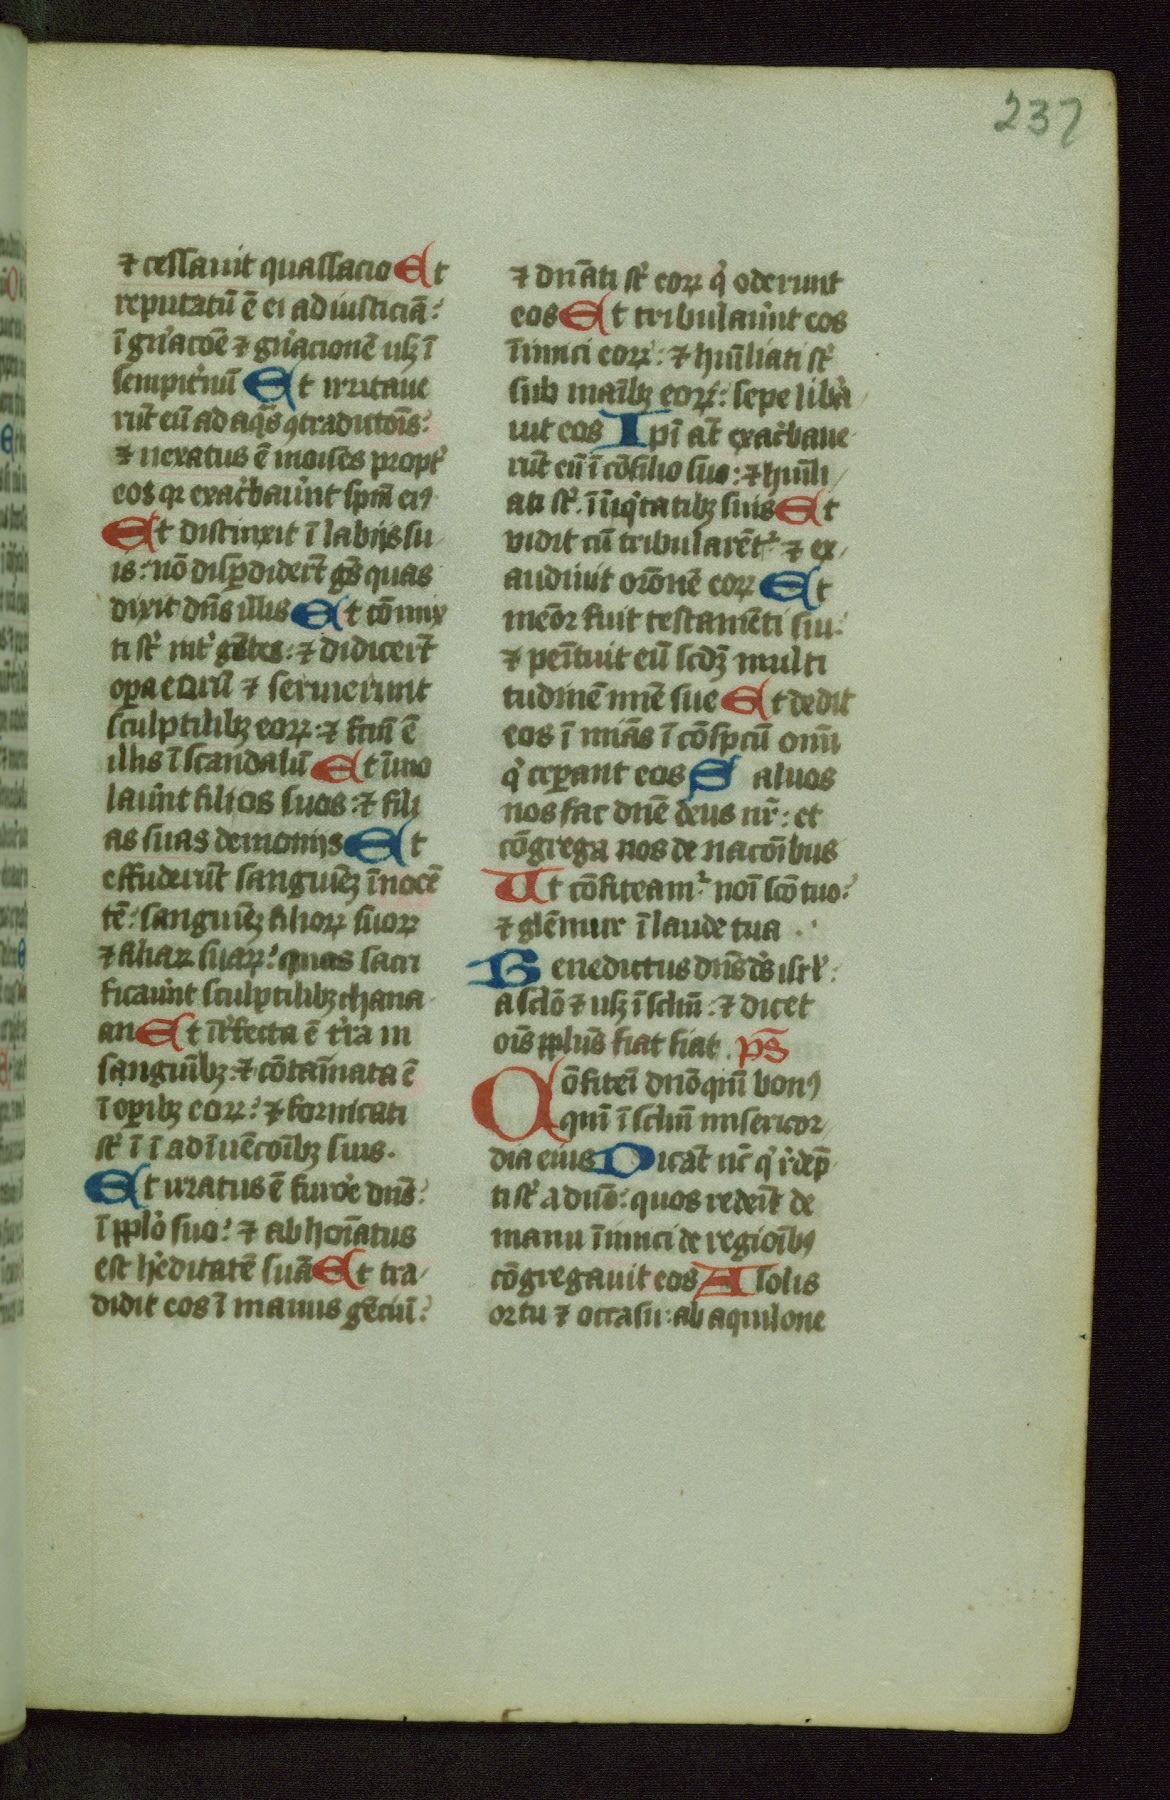 237
⁊ cessauit quassacio Et
reputatū ē ei ad iusticiā:
ī gn̄acōē ⁊ gn̄acionē usq; ī
sempit'nū Et irritaue
rūt eū ad aq̄s ꝯtradictōis:
⁊ uexatus ē moises propt'
eos qr exac'bau'unt sp̄m eiꝰ
Et distinxit ī labijs su
is: nō disꝑdidert̄ gēs quas
dixit dn̄s illis Et cōmix
ti st' int' gētes: ⁊ didicert̄
oꝑa eoꝝ ⁊ seruierunt
sculptilibꝫ eoꝝ: ⁊ fcm̄ ē
illis ī scandalū Et īmo
lau'unt filios suos: ⁊ fili
as suas demonijs Et
effuderūt sanguinē īnocē
tē: sanguinē filioꝝ suoꝝ
⁊ filiaꝝ suaꝝ: quas sacri
ficau'unt sculptilibꝫ chana
an Et īt'fecta ē t'ra in
sanguībꝫ: ⁊ cōtaīata ē
ī oꝑibꝫ eoꝝ: ⁊ fornicati
st' ī ī adīuēcoībꝫ suis.
Et iratus ē furōe dn̄s:
ī pp̄lo suo: ⁊ abhoīatus
est h'editatē suā Et tra
didit eos ī manus gēciū:
⁊ dn̄ati st' eoꝝ q' oderunt
eos Et tribulau'unt eos
īimici eoꝝ: ⁊ hūiliati st'
sub maībꝫ eoꝝ: sepe libā
uit eos Ipī at̄ exac'baue
rūt eū ī cōsilio suo: ⁊ hūili
ati st' ī īiq'tatibꝫ suis Et
vidit cū tribularēt': ⁊ ex
audiuit orōnē eoꝝ Et
meōr fuit testamēti sui:
⁊ peītuit eū scdꝫ multi
tudinē mīe sue Et dedit
eos ī mīas ī cōspcū oīm
q' ceꝑant eos Saluos
nos fac dn̄e deus nr̄: et
cōgrega nos de nacōibus
Ut cōfiteam' noī scō tuo:
⁊ glēmur ī laude tua.
Benedictus dn̄s dē isrl':
a sclō ⁊ usq; ī sclm̄: ⁊ dicet
oīs pp̄lus fiat fiat. p̄s
Cōfitei dn̄o qm̄ bonꝰ
qm̄ ī sclm̄ misericor
dia eius Dicāt nc̄ q' r'dēp
ti st' a dn̄o: quos redeīt de
manu īimici de regioībꝰ
cōgregauit eos A solis
ortu ⁊ occasu: ab aquilone